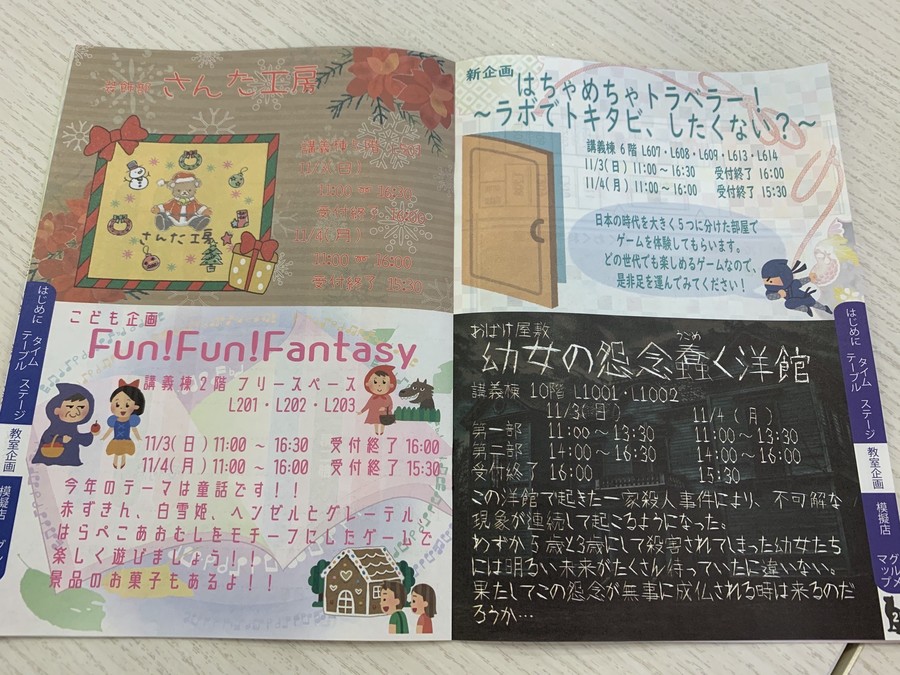 さんた工房
さんた工房
講義棟
11/3(日)
11:00 ~ 16:30
受付終了
11/4(月)
11:00 ~ 16:00
受付終了 15:30
こども企画
Fun!Fun!Fantasy
講義棟2階 フリースペース
L201・L202・L203
11/3(日)11:00 ~ 16:30 受付終了 16:00
11/4(月)11:00 ~ 16:00 受付終了 15:30
今年のテーマは童話です!!
赤ずきん、白雪姫、ヘンゼルとグレーテル、
はらぺこあおむしをモチーフにしたゲームで
楽しく遊びましょう!!
景品のお菓子もあるよ!!
はじめに
タイムテーブル
ステージ
教室企画
模擬店
新企画
はちゃめちゃトラベラー!
~ラボでトキタビ、したくない?~
講義棟 6階 L607・L608・L609・L613・L614
11/3(日)11:00~16:30 受付終了 16:00
11/4(月)11:00~16:00 受付終了 15:30
日本の時代を大きく5つに分けた部屋で
ゲームを体験してもらいます。
どの世代でも楽しめるゲームなので、
是非足を運んでみてください!
おばけ屋敷
幼女の怨念蠢く洋館
うごめ
講義棟 10階 L1001・L1002
11/3(日) 11/4(月)
第一部 11:00~13:30 11:00~13:30
第二部 14:00~16:30 14:00~16:00
受付終了 16:00 15:30
この洋館で起きた一家殺人事件により、不可解な
現象が連続して起こるようになった。
わずか5歳と3歳にして殺害されてしまった幼女たち
には明るい未来がたくさん待っていたに違いない。
果たしてこの怨念が無事に成仏される時は来るのだ
ろうか…
はじめに
タイムテーブル
ステージ
教室企画
模擬店
グルメマップ